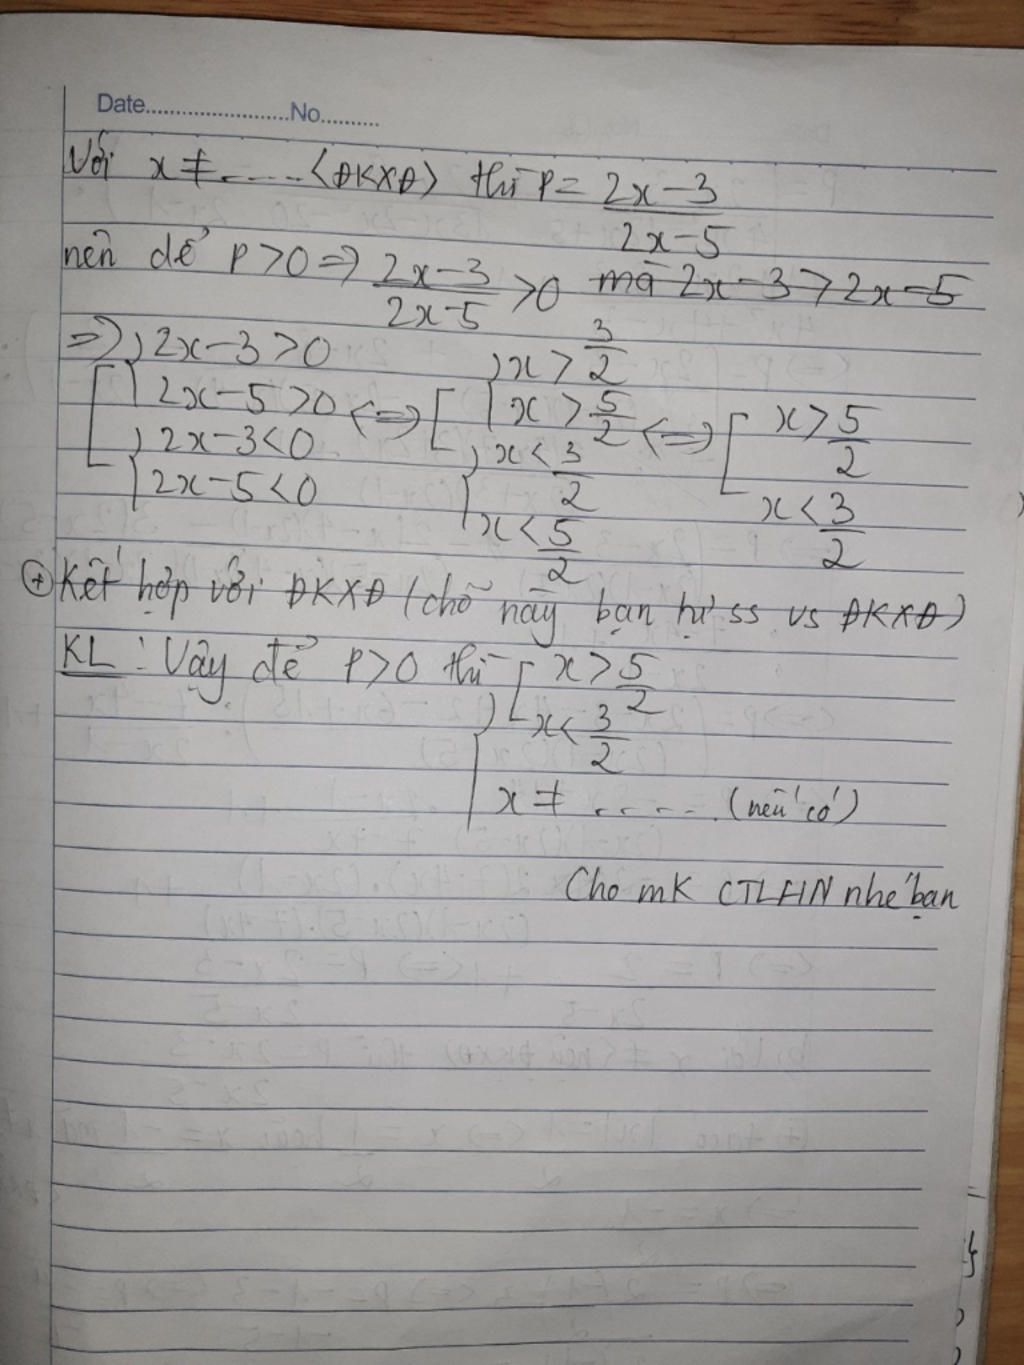 Date........................No..........
Với x ≠ ..... <ĐKXĐ> thì P = \frac{2x-3}{2x-5}
nên để P>0 => \frac{2x-3}{2x-5} >0 mà 2x-3>2x-5
=> [ { 2x-3>0 ; 2x-5>0 } { 2x-3<0 ; 2x-5<0 } <=> [ { x>\frac{3}{2} ; x>\frac{5}{2} } { x<\frac{3}{2} ; x<\frac{5}{2} } <=> [ x>\frac{5}{2} ; x<\frac{3}{2}
+ Kết hợp với ĐKXĐ (chỗ này bạn tự ss vs ĐKXĐ)
KL: Vậy để P>0 thì { [ x>\frac{5}{2} ; x<\frac{3}{2}
x ≠ ..... (nếu có)
Cho mk CTLHN nhé bạn